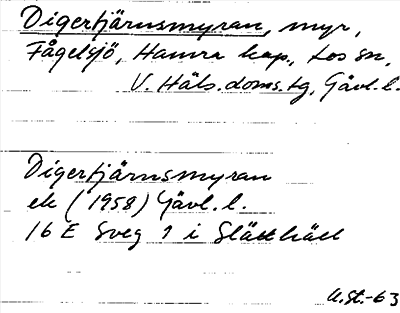 Digertjärnsmyran, myr,
Fågelsjö, Hamra kap., Los sn,
V. Häls. doms. tg, Gävl. l.
Digertjärnsmyran
ek (1958) Gävl. l.
16 E Sveg 1 i Slätthäll
U.St.-63